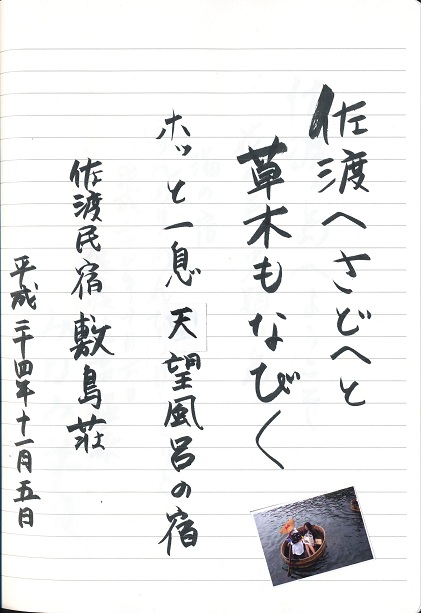 佐渡へさどへと
草木もなびく
ホッと一息 天望風呂の宿
佐渡民宿敷島荘
平成二十四年十一月五日